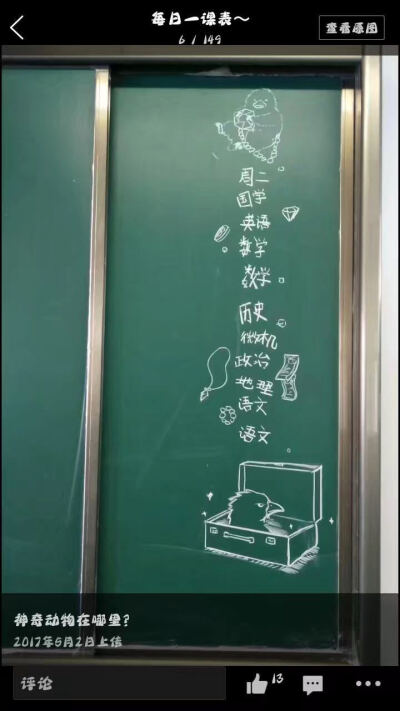 每日一课表～
6 / 149
查看原图
周二
国学
英语
数学
数学
历史
微机
政治
地理
语文
语文
神奇动物在哪里?
2017年6月2日上传
评论
13